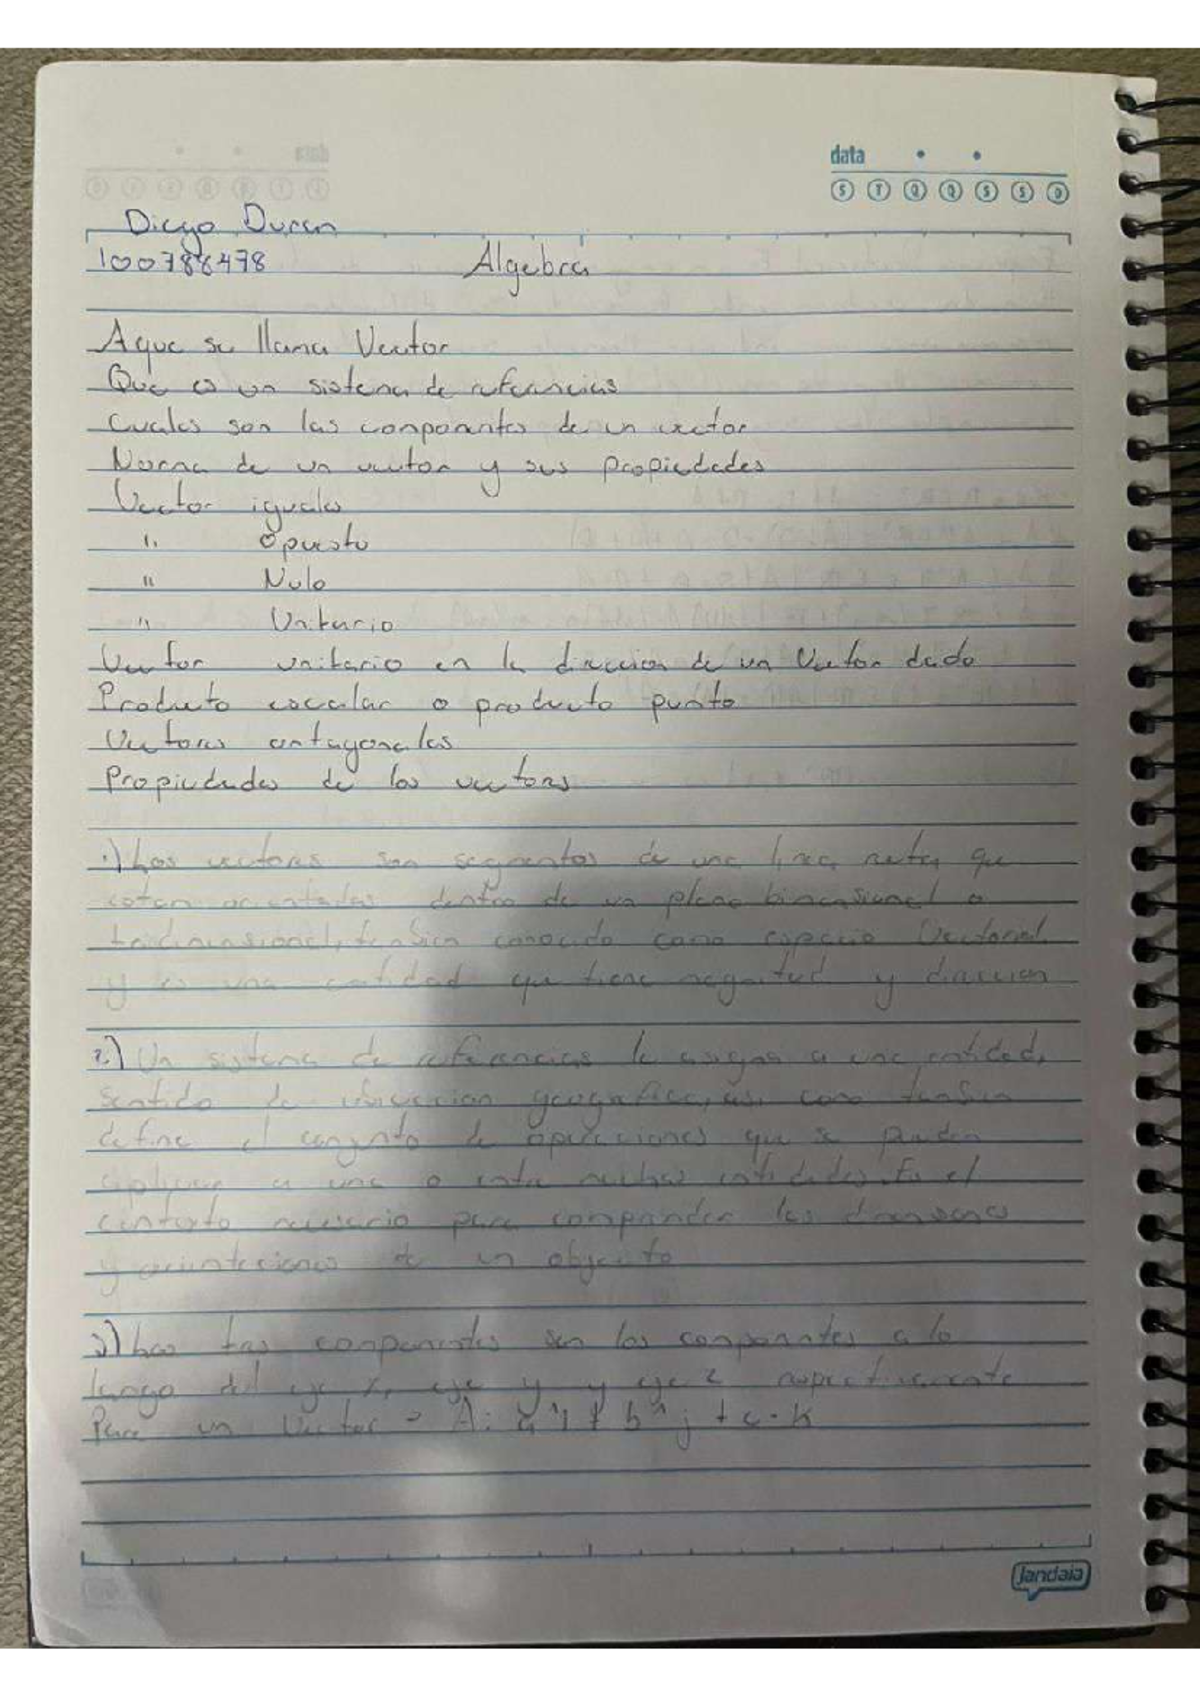 data
S T Q Q S S D
Diego Duran
100788478 Algebra
Aque se llama Vector
Que es un sistema de referencias
Cuales son las componentes de un vector
Norma de un vector y sus propiedades
Vector iguales
" Opuesto
" Nulo
" Unitario
Vector unitario en la direccion de un Vector dado
Producto escalar o producto punto
Vectores ortogonales
Propiedades de los vectores
1.) Los vectores son segmentos de una linea recta que
estan orientados dentro de un plano bimensional o
tridimensional, tambien conocido como espacio Vectorial
y es una cantidad que tiene magnitud y direccion
2.) Un sistema de referencias le asigna a una entidad,
sentido de ubicacion geografica, asi como tambien
define el conjunto de operaciones que se pueden
aplicar a una o entre muchas entidades. Es el
contexto necesario para comprender las dimensiones
y orientaciones de un objecto
3) Las tres componentes son los componentes a lo
largo del eje x, eje y y eje z respectivamente
Para un Vector = A: a^i + b^j + c-k
Jandaia